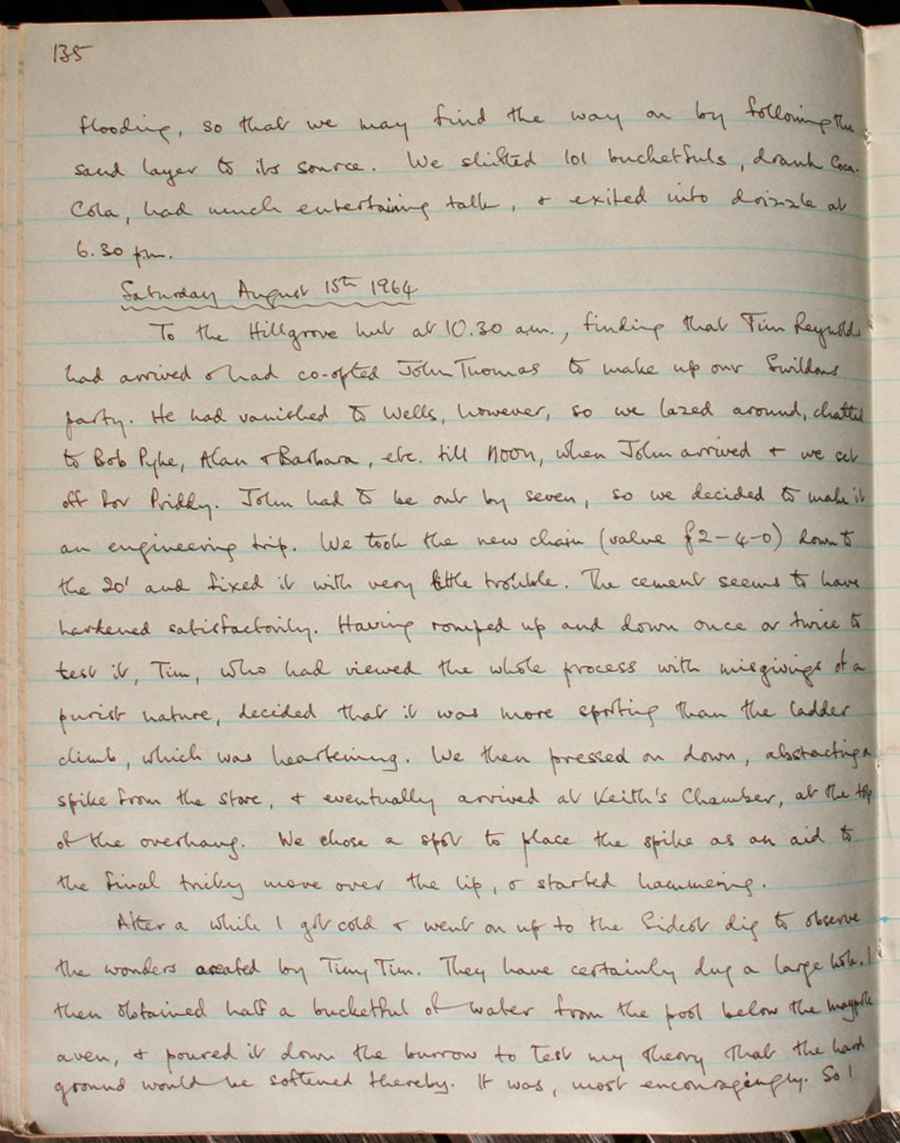 135
flooding, so that we may find the way on by following the
sand layer to its source. We shifted 101 bucketfuls, drank Coca-
Cola, had much entertaining talk, & exited into drizzle at
6.30 pm.
Saturday August 15th 1964
To the Hillgrove hut at 10.30 a.m., finding that Tim Reynolds
had arrived & had co-opted John Thomas to make up our Swildons
party. He had vanished to Wells, however, so we lazed around, chatted
to Bob Pyke, Alan & Barbara, etc. till noon, when John arrived & we set
off for Priddy. John had to be out by seven, so we decided to make it
an engineering trip. We took the new chain (value £2-4-0) down to
the 20' and fixed it with very little trouble. The cement seems to have
hardened satisfactorily. Having romped up and down once or twice to
test it, Tim, who had viewed the whole process with misgivings of a
purist nature, decided that it was more sporting than the ladder
climb, which was heartening. We then pressed on down, abstracting a
spike from the store, & eventually arrived at Keith's Chamber, at the top
of the overhang. We chose a spot to place the spike as an aid to
the final tricky move over the lip, & started hammering.
After a while I got cold & went on up to the Sidcot dig to observe
the wonders created by Tiny Tim. They have certainly dug a large hole. I
then obtained half a bucketful of water from the pool below the maypole
aven, & poured it down the burrow to test my theory that the hard
ground would be softened thereby. It was, most encouragingly. So I